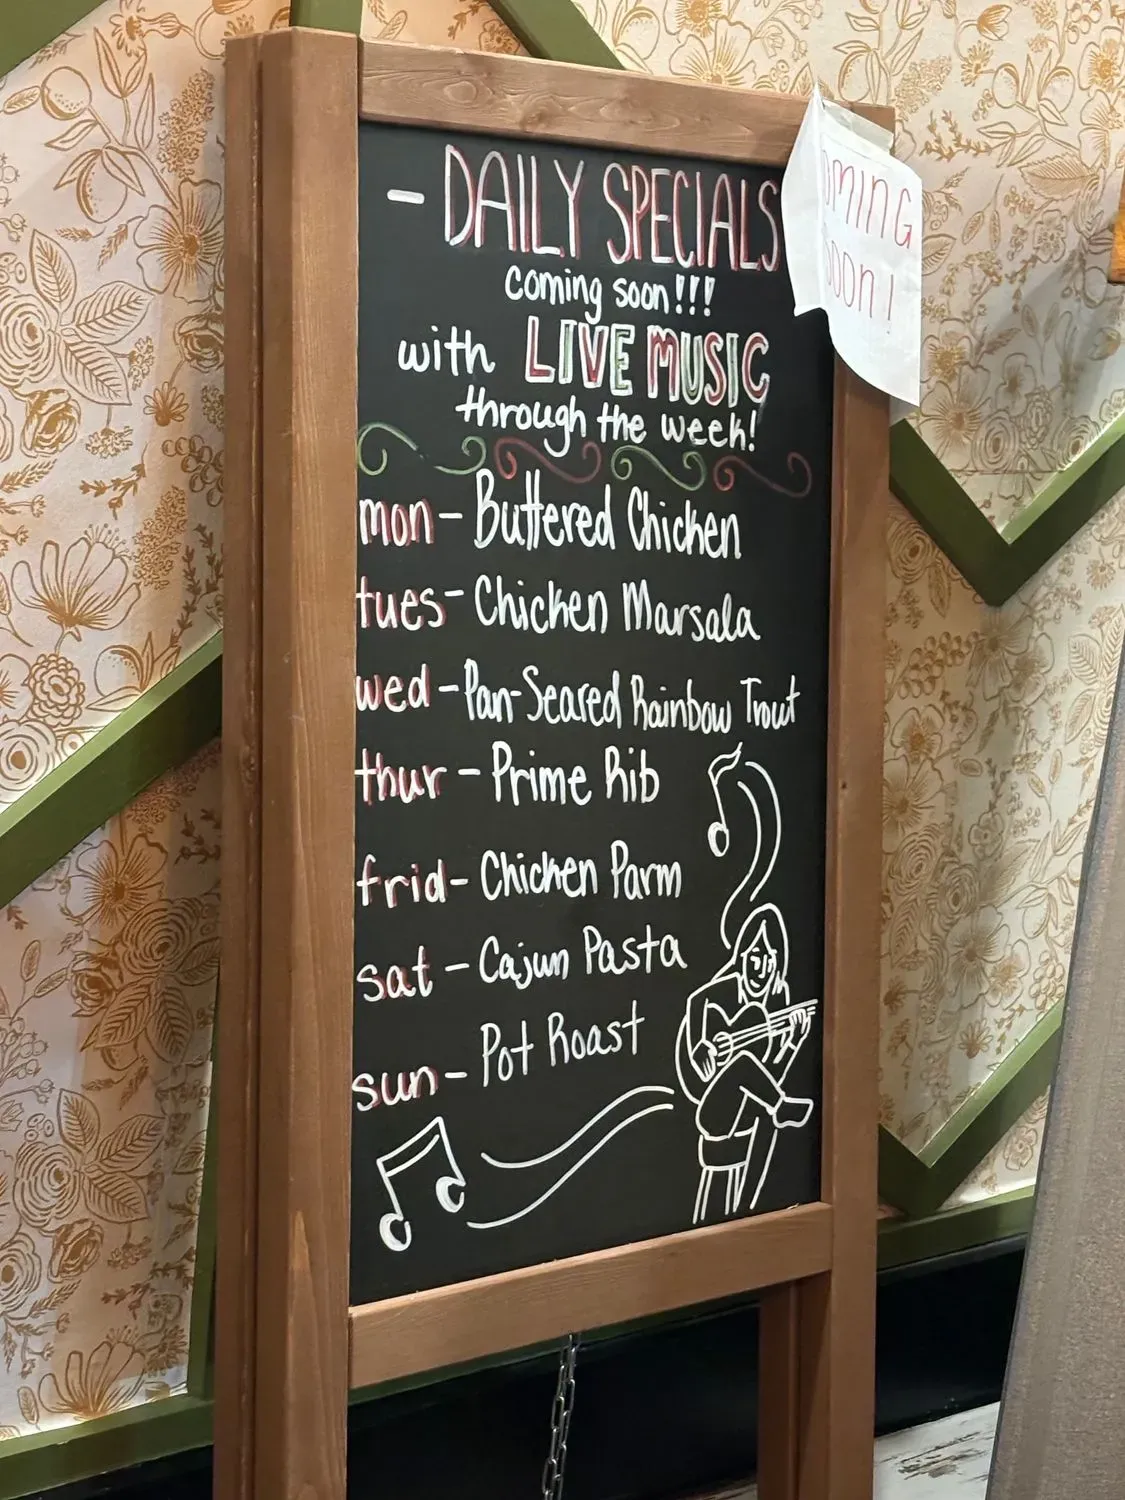 - DAILY SPECIALS
coming soon!!!
with LIVE MUSIC
through the week!
mon - Buttered Chicken
tues - Chicken Marsala
wed - Pan-Seared Rainbow Trout
thur - Prime Rib
frid - Chicken Parm
sat - Cajun Pasta
sun - Pot Roast
OMING
oon!